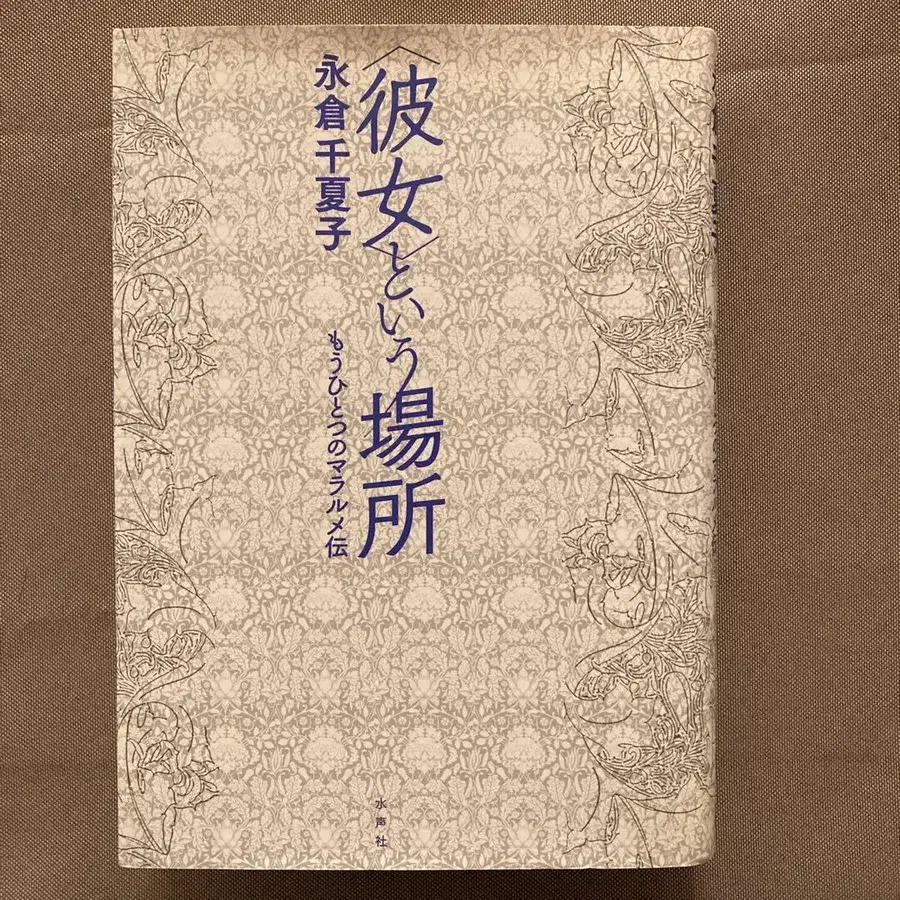 〈彼女〉という場所
永倉千夏子
もうひとつのマラルメ伝
水声社